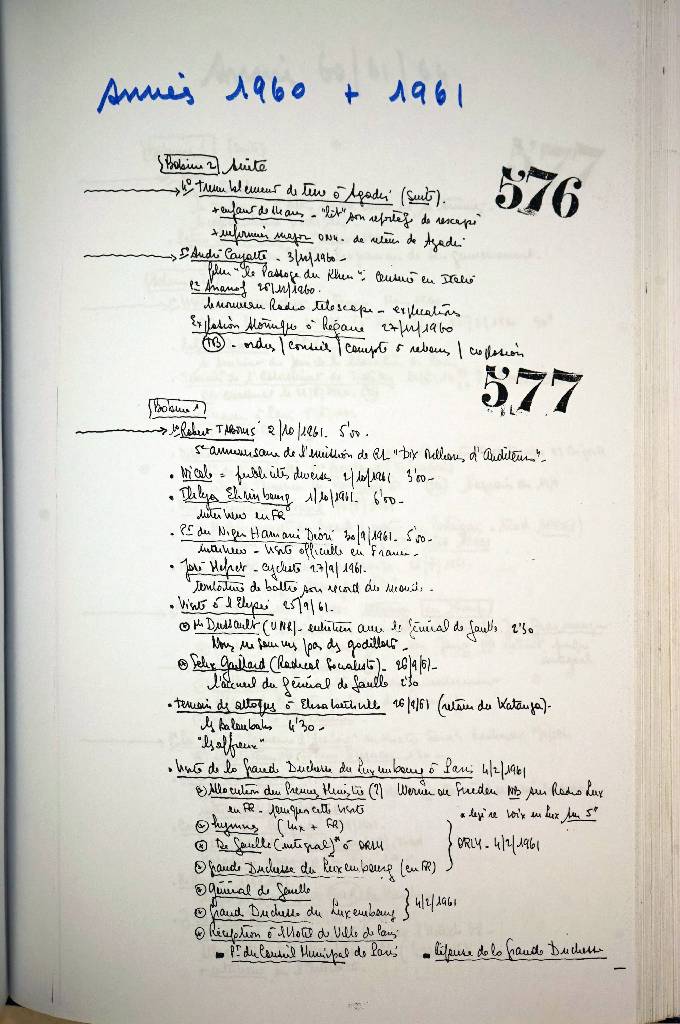 Années 1960 + 1961
Bobine 2 suite
576
4° Tremblement de terre à Agadir (suite).
+ enfant de 11 ans - "lit" son reportage de rescapé
+ infirmier major ONU - de retour de Agadir
5° André Cayatte - 3/11/1960 -
film "le Passage du Rhin": censuré en Italie
26/11/1960.
le nouveau Radio télescope - explications
Explosion Atomique à Reggane 27/11/1960
TB - ordres / conseil / compte à rebours / explosion
577
Bobine 1
1° Robert TABOUIS 2/10/1961. 5'00.
5e anniversaire de l'émission de RL "Dix Millions d'Auditeurs" -
• Nicole = publicités diverses 2/10/1961 3'00 -
• Ehrenbourg 1/10/1961 - 6'00 -
interview en FR
• Pt du Niger Hamani Diori 30/9/1961 - 5'00 -
interview - visite officielle en France -
• José Meffret - cycliste 27/9/1961.
tentative de battre son record du monde -
• Visite à l'Elysée 25/9/61 -
Mr Dussault (UNR) - entretien avec le Général de Gaulle 2'30
Nous ne sommes pas des godillots -
Félix Gaillard (Radical Socialiste) - 26/9/61 -
l'accueil du Général de Gaulle 2'30
• Témoin des attaques à Elisabethville 26/9/61 (retour du Katanga) -
les Baloubas 4'30 -
"les affreux"
• Visite de la Grande Duchesse du Luxembourg à Paris 4/2/1961
Allocution du Premier Ministre (?) Werner sur Radio Lux
en FR - cette visite
voix en Lux sur 5"
Hymnes (Lux + FR)
De Gaulle (intégral) à ORLY
ORLY - 4/2/1961
Grande Duchesse du Luxembourg (en FR)
Général de Gaulle
4/2/1961
Grande Duchesse du Luxembourg
Réception à l'Hôtel de Ville de Paris
Pt du Conseil Municipal de Paris - Réponse de la Grande Duchesse